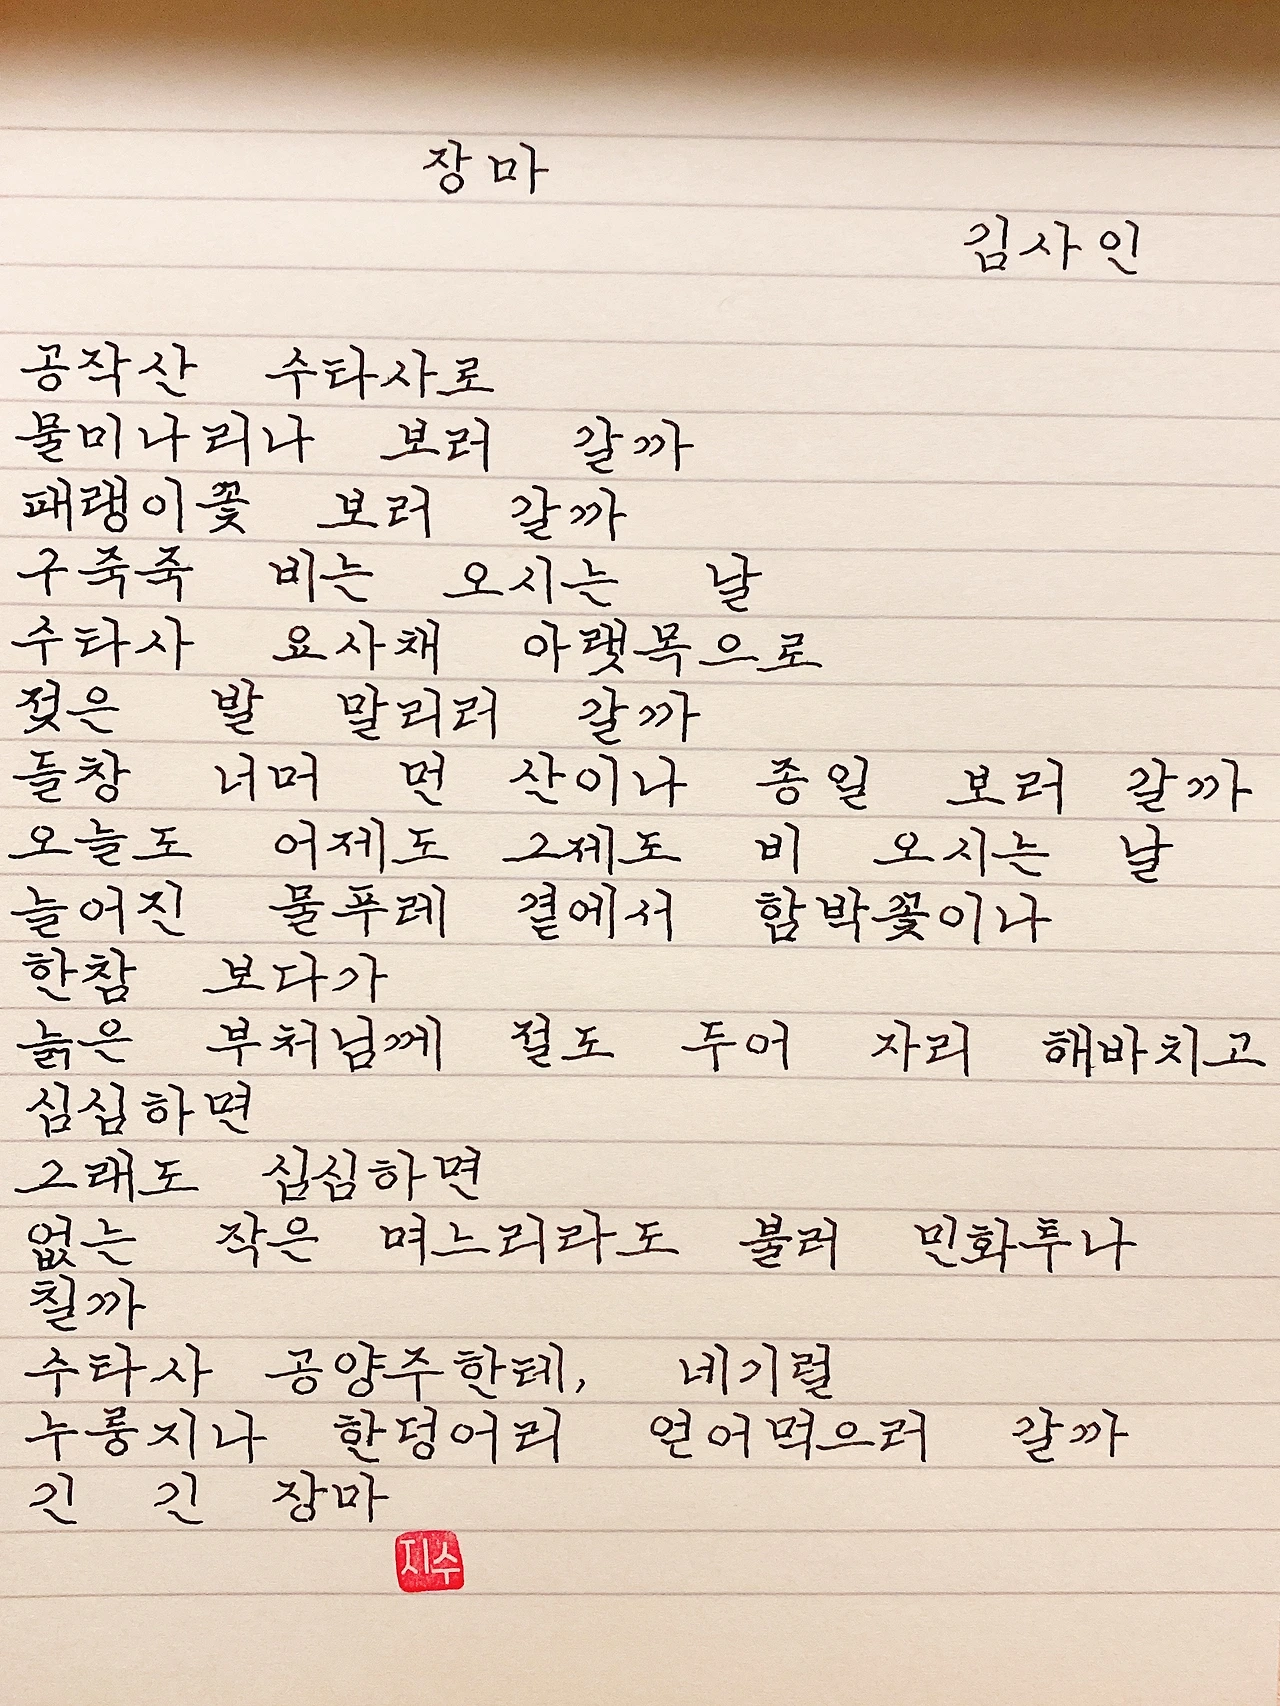 장마
김사인
공작산 수타사로
물미나리나 보러 갈까
패랭이꽃 보러 갈까
구죽죽 비는 오시는 날
수타사 요사채 아랫목으로
젖은 발 말리러 갈까
들창 너머 먼 산이나 종일 보러 갈까
오늘도 어제도 그제도 비 오시는 날
늘어진 물푸레 곁에서 함박꽃이나
한참 보다가
늙은 부처님께 절도 두어 자리 해바치고
심심하면
그래도 심심하면
없는 작은 며느리라도 불러 민화투나
칠까
수타사 공양주한테, 네기럴
누룽지나 한덩어리 얻어먹으러 갈까
긴 긴 장마
지수